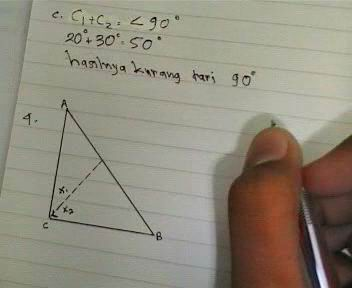 c. C₁+C₂ = < 90°
20°+30° = 50°
hasilnya kurang dari 90°
4.
A
x₁
x₂
C
B